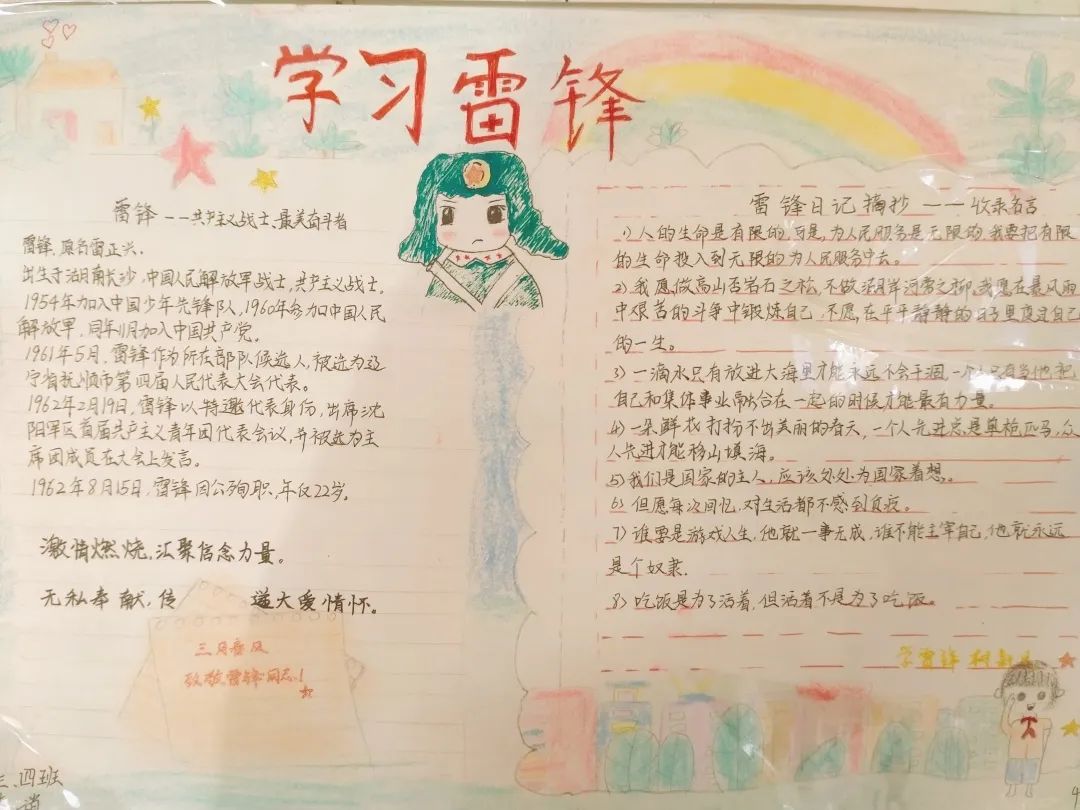 学习雷锋
雷锋——共产主义战士、最美奋斗者
雷锋,原名雷正兴。
出生于湖南长沙,中国人民解放军战士,共产主义战士,
1954年加入中国少年先锋队,1960年参加中国人民
解放军,同年11月加入中国共产党。
1961年5月,雷锋作为所在部队候选人,被选为辽
宁省抚顺市第四届人民代表大会代表。
1962年2月19日,雷锋以特邀代表身份,出席沈
阳军区首届共产主义青年团代表会议,并被选为主
席团成员在大会上发言。
1962年8月15日,雷锋因公殉职,年仅22岁。
激情燃烧,汇聚信念力量。
无私奉献,传 递大爱情怀。
三月春风
致敬雷锋同志!
三、四班
雷锋日记摘抄——收录名言
1)人的生命是有限的,可是,为人民服务是无限的,我要把有限
的生命投入到无限的为人民服务中去。
2)我愿做高山岩石之松,不做湖岸河旁之柳,我愿在暴风雨
中艰苦的斗争中锻炼自己,不愿在平平静静的日子里度过自己
的一生。
3)一滴水只有放进大海里才能永远不会干涸,一个人只有当他把
自己和集体事业融合在一起的时候才能最有力量。
4)一朵鲜花打扮不出美丽的春天,一个人先进总是单枪匹马,众
人先进才能移山填海。
5)我们是国家的主人,应该处处为国家着想。
6)但愿每次回忆,对生活都不感到负疚。
7)谁要是游戏人生,他就一事无成,谁不能主宰自己,他就永远
是个奴隶.
8)吃饭是为了活着,但活着不是为了吃饭。
学雷锋 树新风